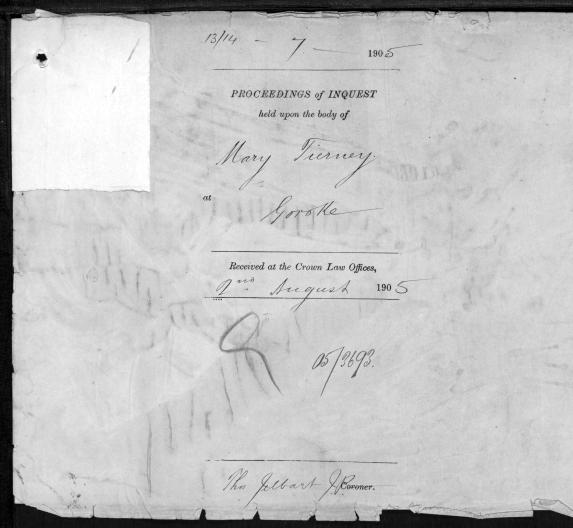 13/14 - 7 - 1905
PROCEEDINGS of INQUEST
held upon the body of
Mary Tierney.
at
Goroke
Received at the Crown Law Offices,
2nd August 1905
05/3693.
Thos Jelbart J.P. Coroner.